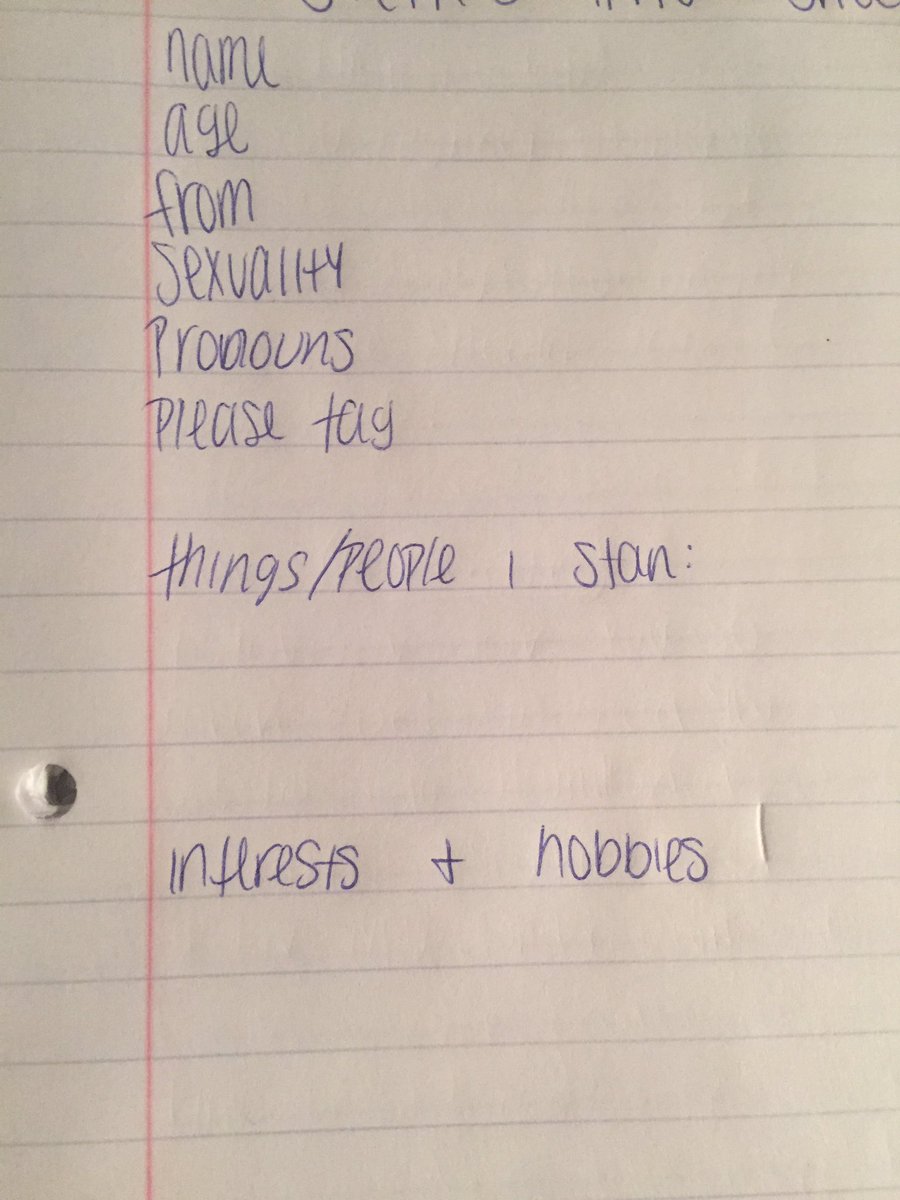 name
age
from
sexuality
Pronouns
Please tag
things/people i stan:
interests + hobbies